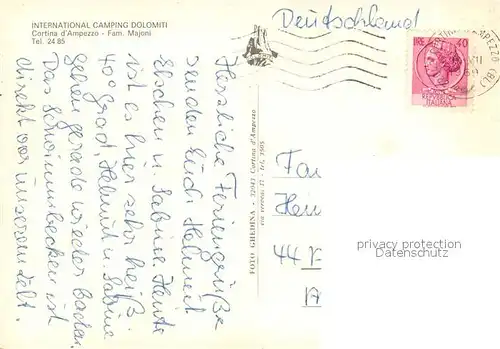 INTERNATIONAL CAMPING DOLOMITI
Cortina d'Ampezzo - Fam. Majoni
Tel. 24 85
Deutschland
LIRE 40
Herzliche Feriengrüße
senden Euch Helmut
Elschen u. Sabine. Heute
ist es hier sehr heiß
40 Grad, Helmut u. Sabine
gehen gerade wieder baden.
Das Schwimmbecken ist
direkt vor unserem Zelt.
FOTO GHEDINA - 32043 Cortina d'Ampezzo
Fam
Hein
44
privacy protection
Datenschutz